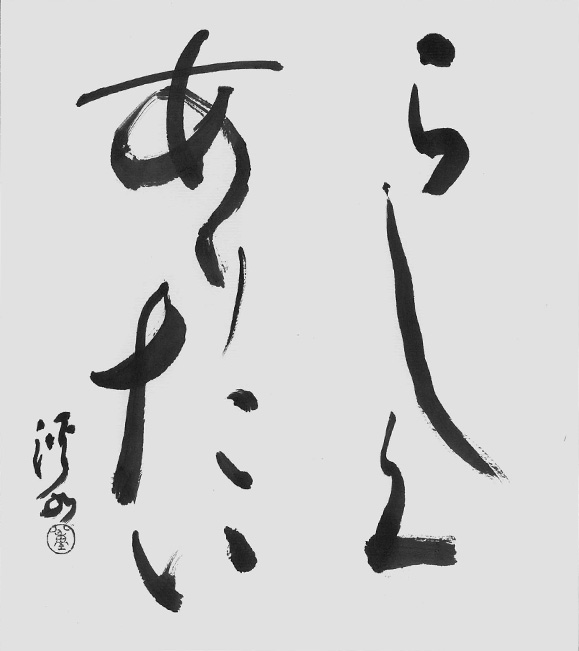 らしく
ありたい